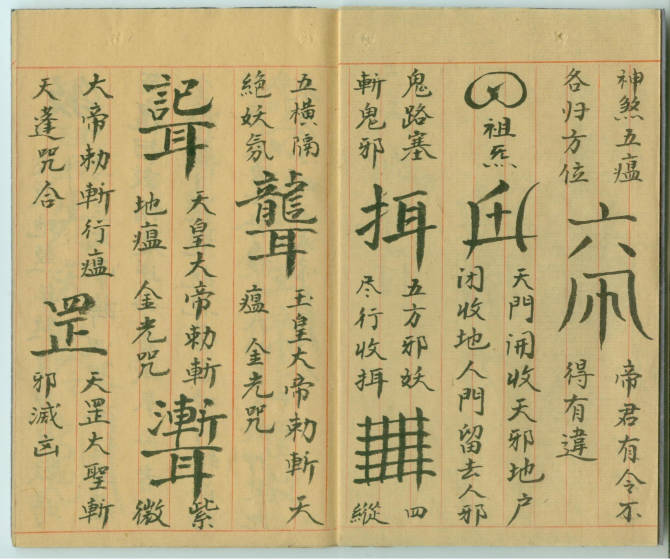 神煞五瘟
各归方位
帝君有令不
得有違
祖炁
天門開收天邪地户
闭收地人門留去人邪
鬼路塞
斬鬼邪
五方邪妖
尽行收挕
四
縱
五橫隔
絕妖氛
玉皇大帝勅斬天
瘟 金光咒
天皇大帝勅斬
地瘟 金光咒
紫
微
大帝勅斬行瘟
天蓬咒合
罡
天罡大聖斬
邪滅凶